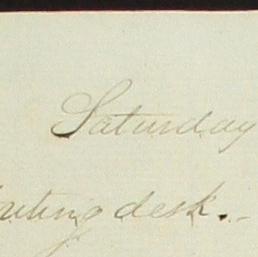 Saturday
writing desk.-